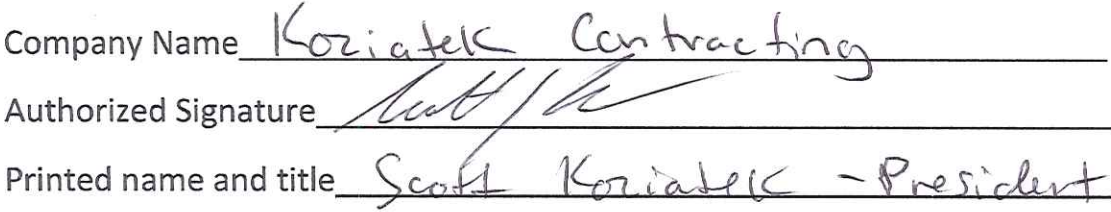 Company Name Koziatek Contracting
Authorized Signature
Printed name and title Scott Koziatek - President